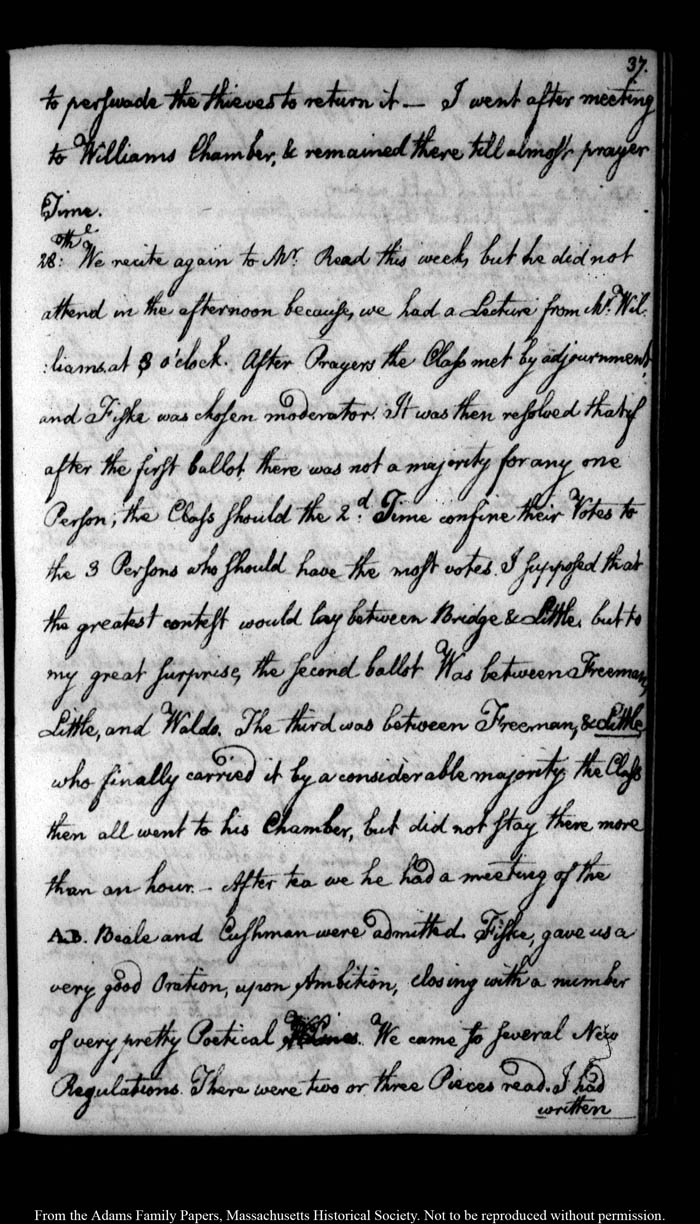 37.
to perswade the thieves to return it — I went after meeting
to Williams Chamber, & remained there till almost prayer
Time.
28:th We recite again to Mr. Read this week, but he did not
attend in the afternoon because, we had a Lecture from Mr. Wil-
:liams. at 3 o'clock. After Prayers the Class met by adjournment,
and Fiske was chosen moderator. It was then resolved that if
after the first ballot, there was not a majority for any one
Person; the Class should the 2d. Time confine their Votes to
the 3 Persons who should have the most votes. I supposed that
the greatest contest would lay between Bridge & Little, but to
my great surprise, the second ballot Was between Freeman,
Little, and Waldo. The third was between Freeman, & Little
who finally carried it by a considerable majority. the Class
then all went to his Chamber, but did not stay there more
than an hour. - After tea we he had a meeting of the
A.B. Beale and Cushman were admitted. Fiske, gave us a
very good Oration, upon Ambition, closing with a number
of very pretty Poetical Lines. We came to several New
Regulations. There were two or three Pieces read. I had
written
From the Adams Family Papers, Massachusetts Historical Society. Not to be reproduced without permission.